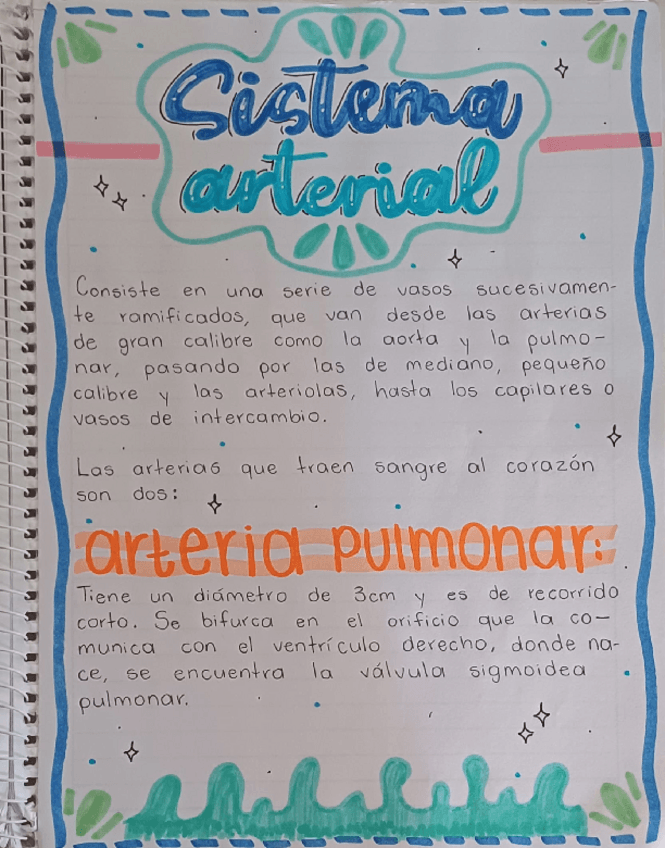 Sistema
arterial
Consiste en una serie de vasos sucesivamen-
te ramificados, que van desde las arterias
de gran calibre como la aorta y la pulmo-
nar, pasando por las de mediano, pequeño
calibre y las arteriolas, hasta los capilares o
vasos de intercambio.
Las arterias que traen sangre al corazón
son dos:
arteria pulmonar:
Tiene un diámetro de 3cm y es de recorrido
corto. Se bifurca en el orificio que la co-
munica con el ventrículo derecho, donde na-
ce, se encuentra la válvula sigmoidea
pulmonar.